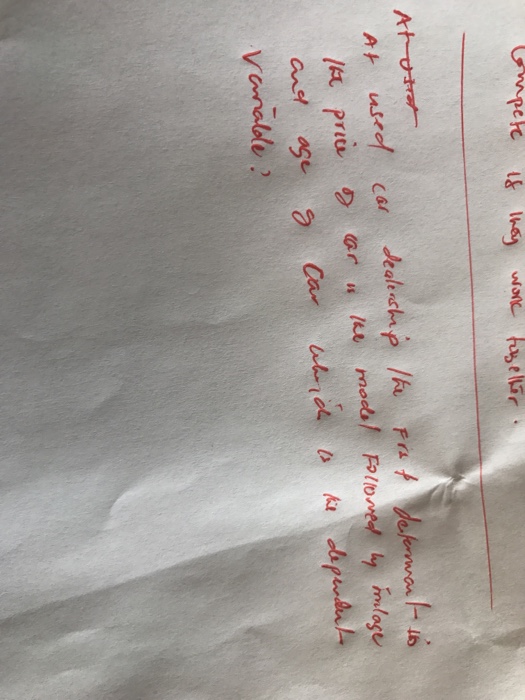 Compete if they work together.
At used
At used car dealership the first determinant is
the price of car is the model followed by milage
and age of car which is the dependent
variable?